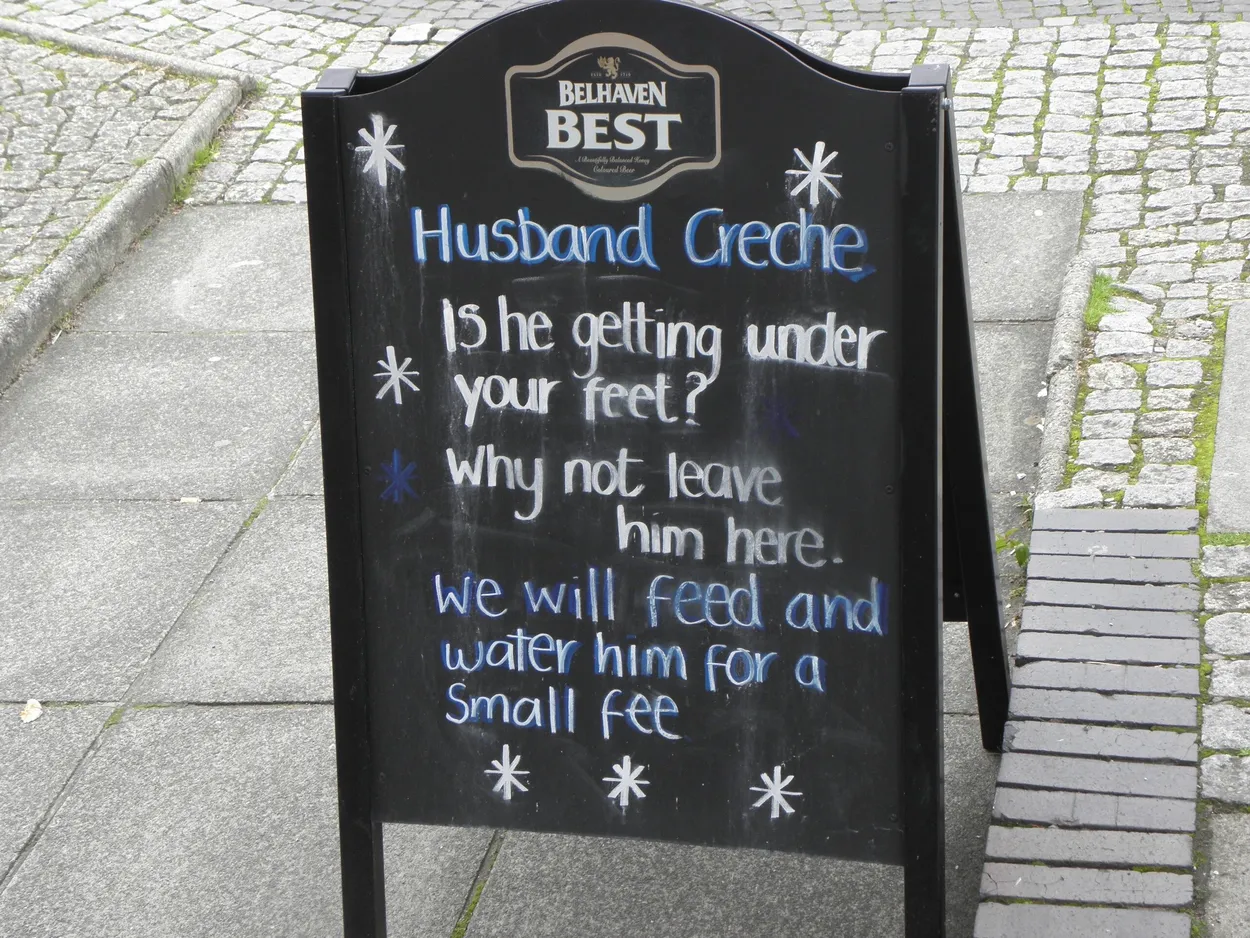 BELHAVEN
BEST
A Beautifully Balanced Honey
Coloured Beer
Husband Creche
Is he getting under
your feet?
Why not leave
him here.
We will feed and
water him for a
Small fee